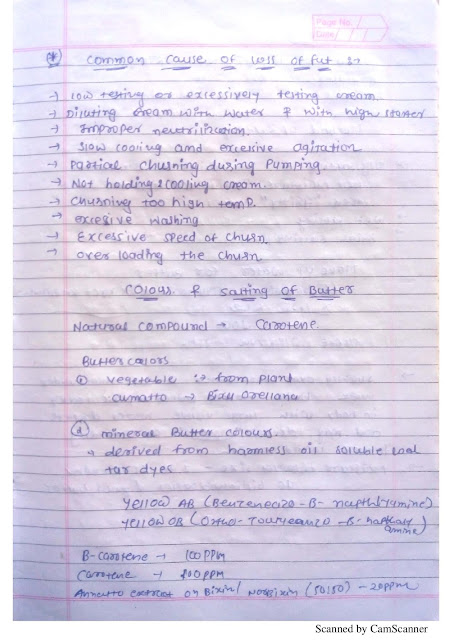 Page No.
Date
(*) common cause of loss of fat :-
→ low testing or excessively testing cream.
→ Diluting cream with water & with high starter
→ Improper neutrilization.
→ Slow cooling and excesive agitation
→ Partial churning during Pumping
→ Not holding & cooling cream.
→ churning too high temp.
→ excesive washing
→ Excessive speed of churn.
→ over loading the churn.
Colour & salting of Butter
Natural compound → Carotene.
Butter colors
① vegetable :→ from plant
→ Bixa Orellana
② mineral Butter colours.
→ derived from harmless oil soluble coal
tar dyes
Yellow AB (Benzeneazo-B-
Yellow OB (Ortho-
B-carotene → 100 PPM
Carotene →
Annatto extract on Bixin/ Norbixin (50:50) - 20ppm
Scanned by CamScanner